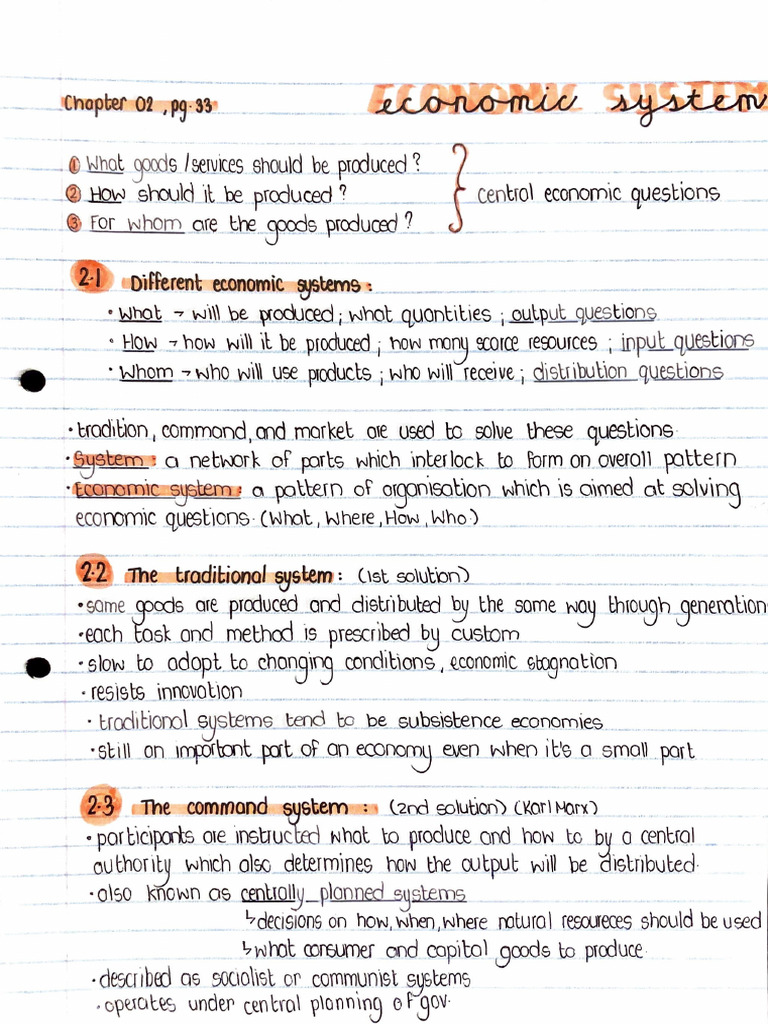 Chapter 02, pg.33
economic system
① What goods/services should be produced?
② How should it be produced?
③ For whom are the goods produced?
central economic questions
2.1 Different economic systems:
• What → will be produced; what quantities; output questions
• How → how will it be produced; how many scarce resources; input questions
• Whom → who will use products; who will receive; distribution questions
• tradition, command, and market are used to solve these questions.
• System: a network of parts which interlock to form an overall pattern
• Economic system: a pattern of organisation which is aimed at solving
economic questions. (What, Where, How, Who.)
2.2 The traditional system: (1st solution)
• same goods are produced and distributed by the same way through generation
• each task and method is prescribed by custom
• slow to adapt to changing conditions, economic stagnation
• resists innovation
• traditional systems tend to be subsistence economies
• still an important part of an economy even when it's a small part
2.3 The command system: (2nd solution) (Karl Marx)
• participants are instructed what to produce and how to by a central
authority which also determines how the output will be distributed.
• also known as centrally planned systems
↳ decisions on how, when, where natural resoureces should be used
↳ what consumer and capital goods to produce.
• described as socialist or communist systems
• operates under central planning of gov.